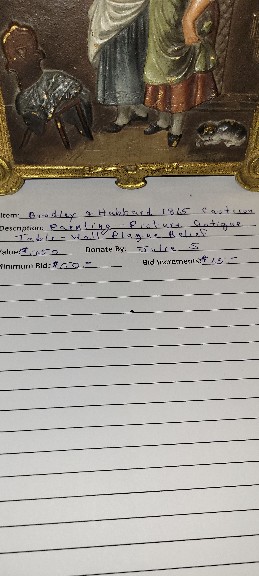 Item: Bradley & Hubbard 1865 Cast iron
Description: Picture Antique
Table - Wall Plaque Relief
Value: Donate By: S
Minimum Bid: Bid Increments $